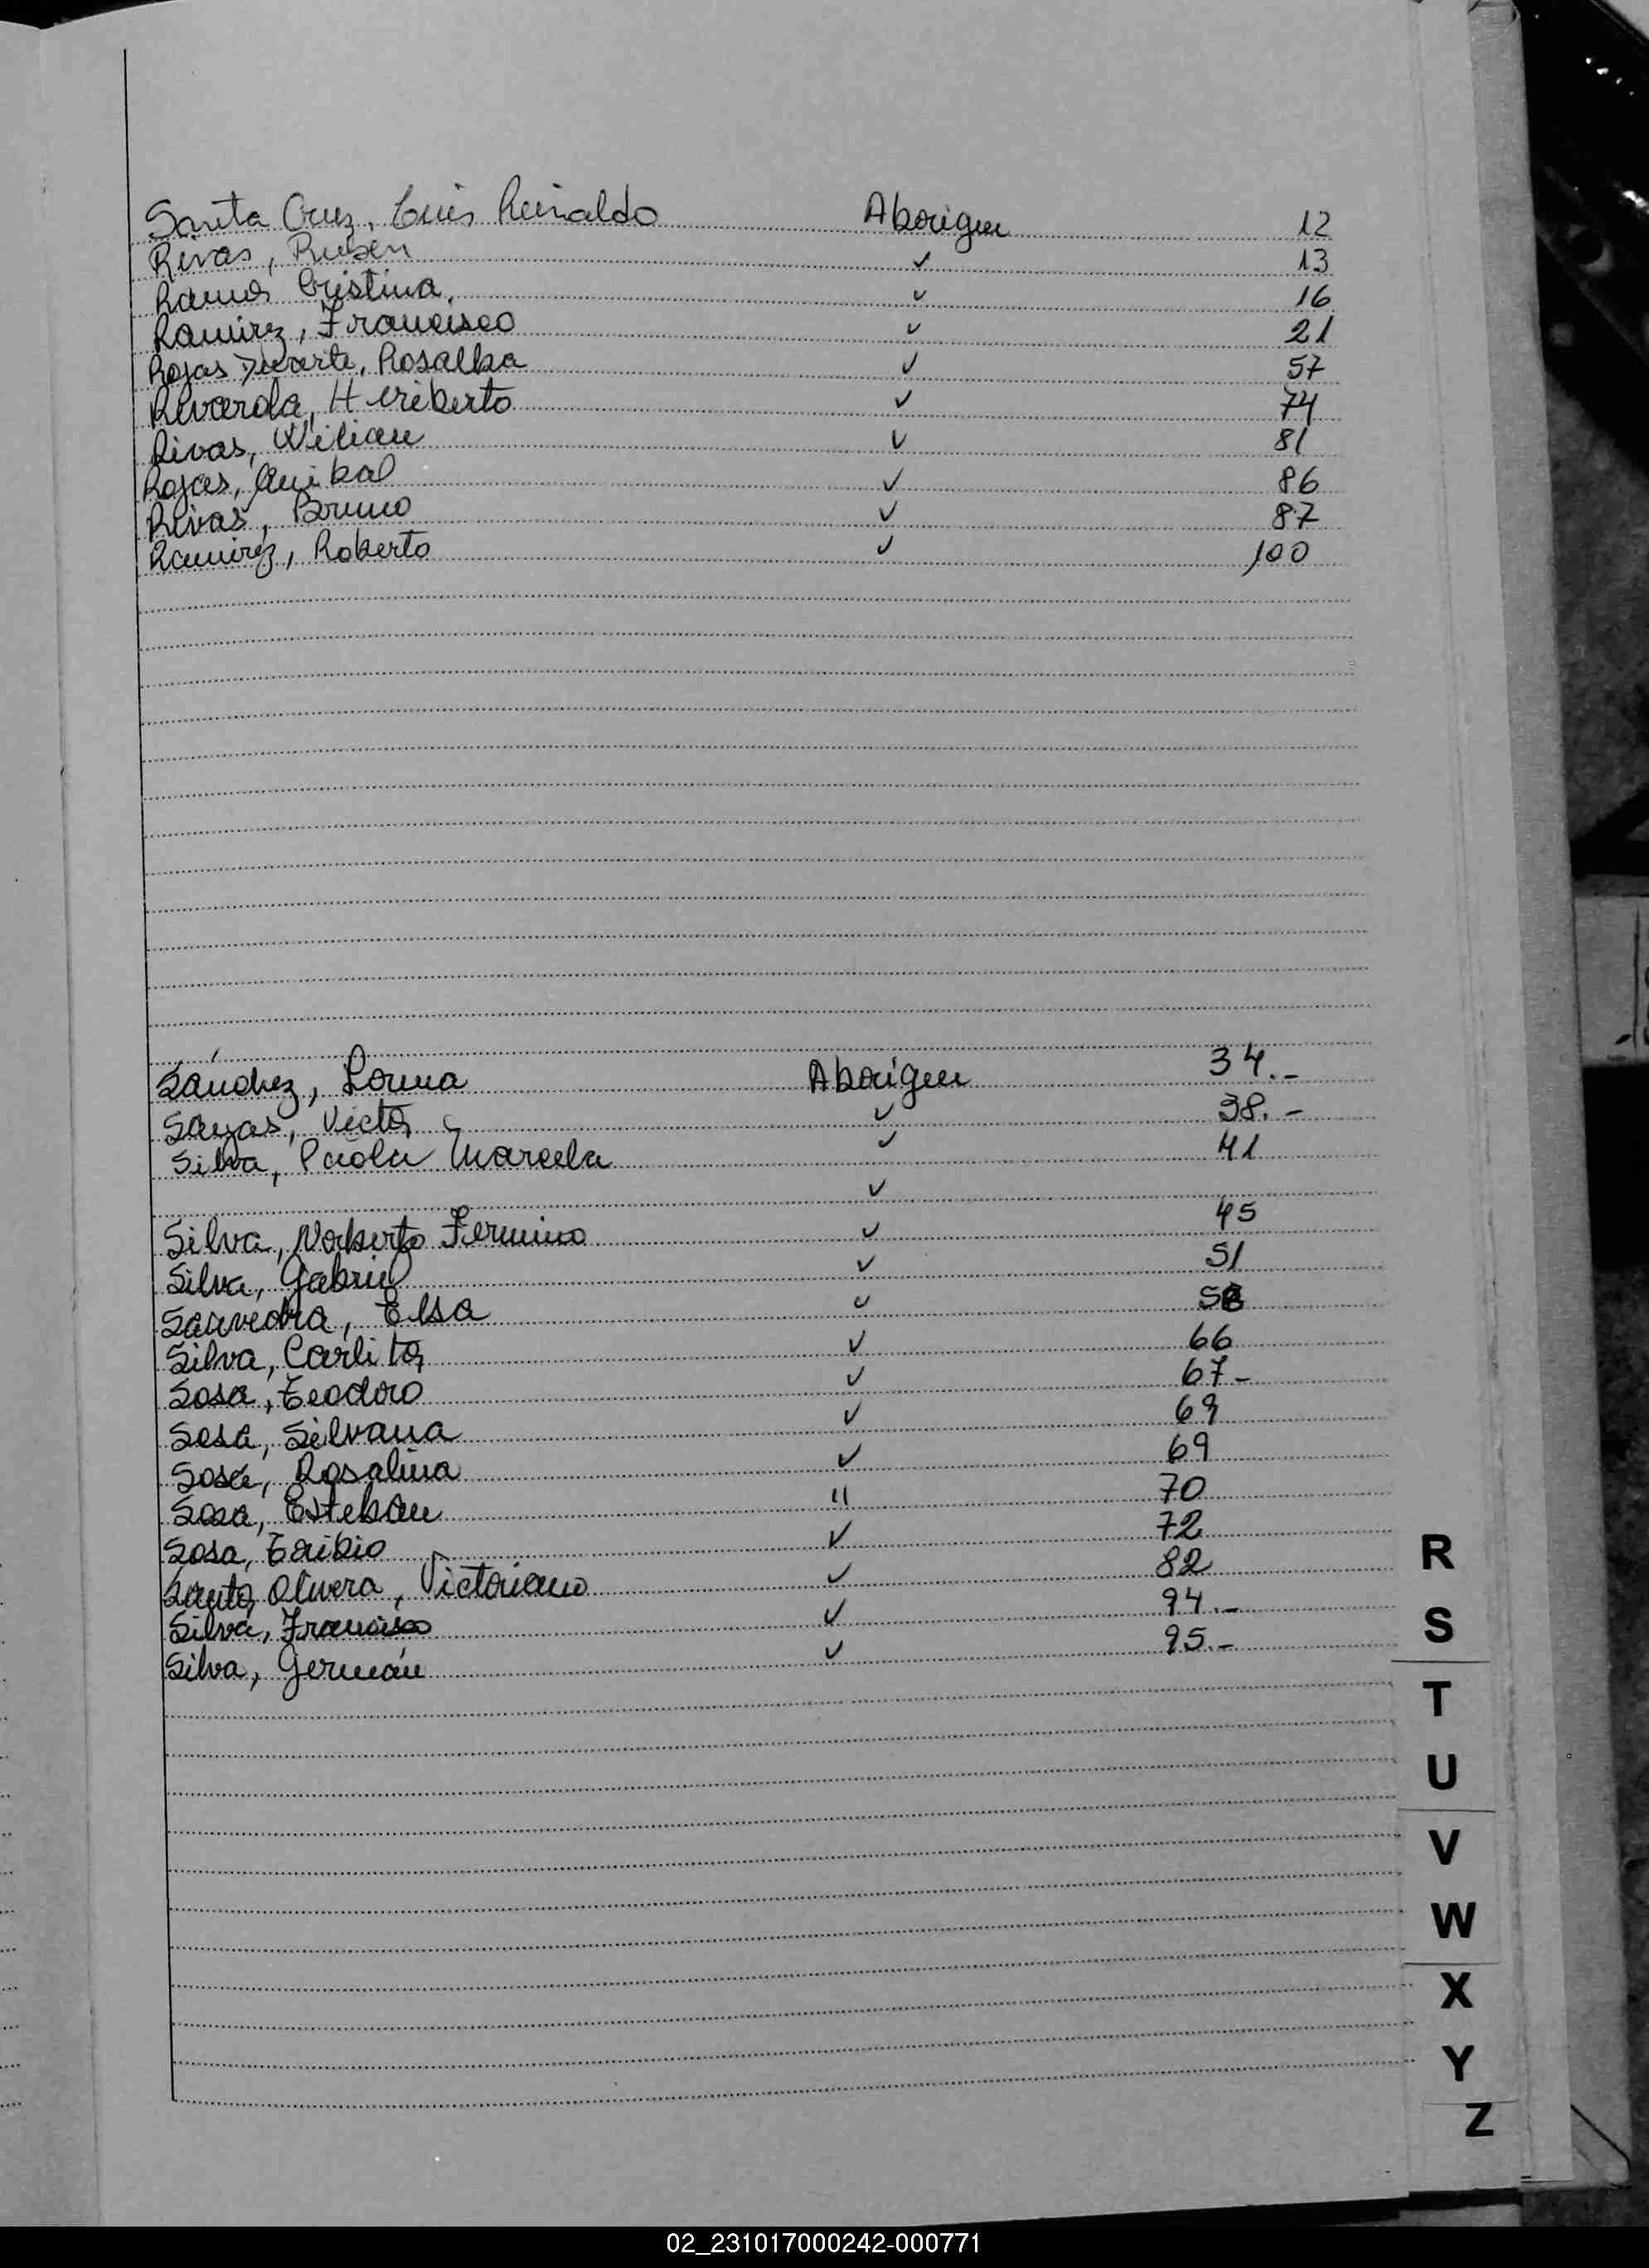 Santa Cruz, Luis Reinaldo Aborigen 12
Rivas, Ruben ✓ 13
Ramos Cristina. ✓ 16
Ramirez, Francisco ✓ 21
Rojas Duarte, Rosalba ✓ 57
Rivarola, Heriberto ✓ 74
Rivas, Wilian ✓ 81
Rojas, Anibal ✓ 86
Rivas, Bruno ✓ 87
Ramirez, Roberto ✓ 100
Sánchez, Lorna Aborigen 34.-
Sayas, Victor ✓ 38.-
Silva, Paola Marcela ✓ 41
✓
Silva, Norberto Fermino ✓ 45
Silva, Gabriel ✓ 51
Saavedra, Elsa ✓ 58
Silva, Carlitos ✓ 66
Sosa, Teodoro ✓ 67-
Sosa, Silvana ✓ 69
Sosa, Rosalina ✓ 69
Sosa, Esteban " 70
Sosa, Toribio ✓ 72
Santos Olivera, Victoriano ✓ 82
Silva, Francisco ✓ 94.-
Silva, Germán ✓ 95.-
R
S
T
U
V
W
X
Y
Z
02_231017000242-000771